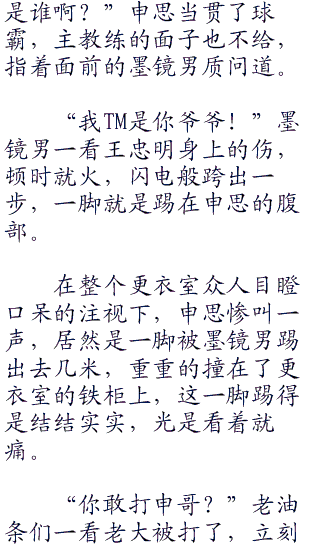 是谁啊？”申思当贯了球
霸，主教练的面子也不给，
指着面前的墨镜男质问道。
“我TM是你爷爷！”墨
镜男一看王忠明身上的伤，
顿时就火，闪电般跨出一
步，一脚就是踢在申思的腹
部。
在整个更衣室众人目瞪
口呆的注视下，申思惨叫一
声，居然是一脚被墨镜男踢
出去几米，重重的撞在了更
衣室的铁柜上，这一脚踢得
是结结实实，光是看着就
痛。
“你敢打申哥？”老油
条们一看老大被打了，立刻